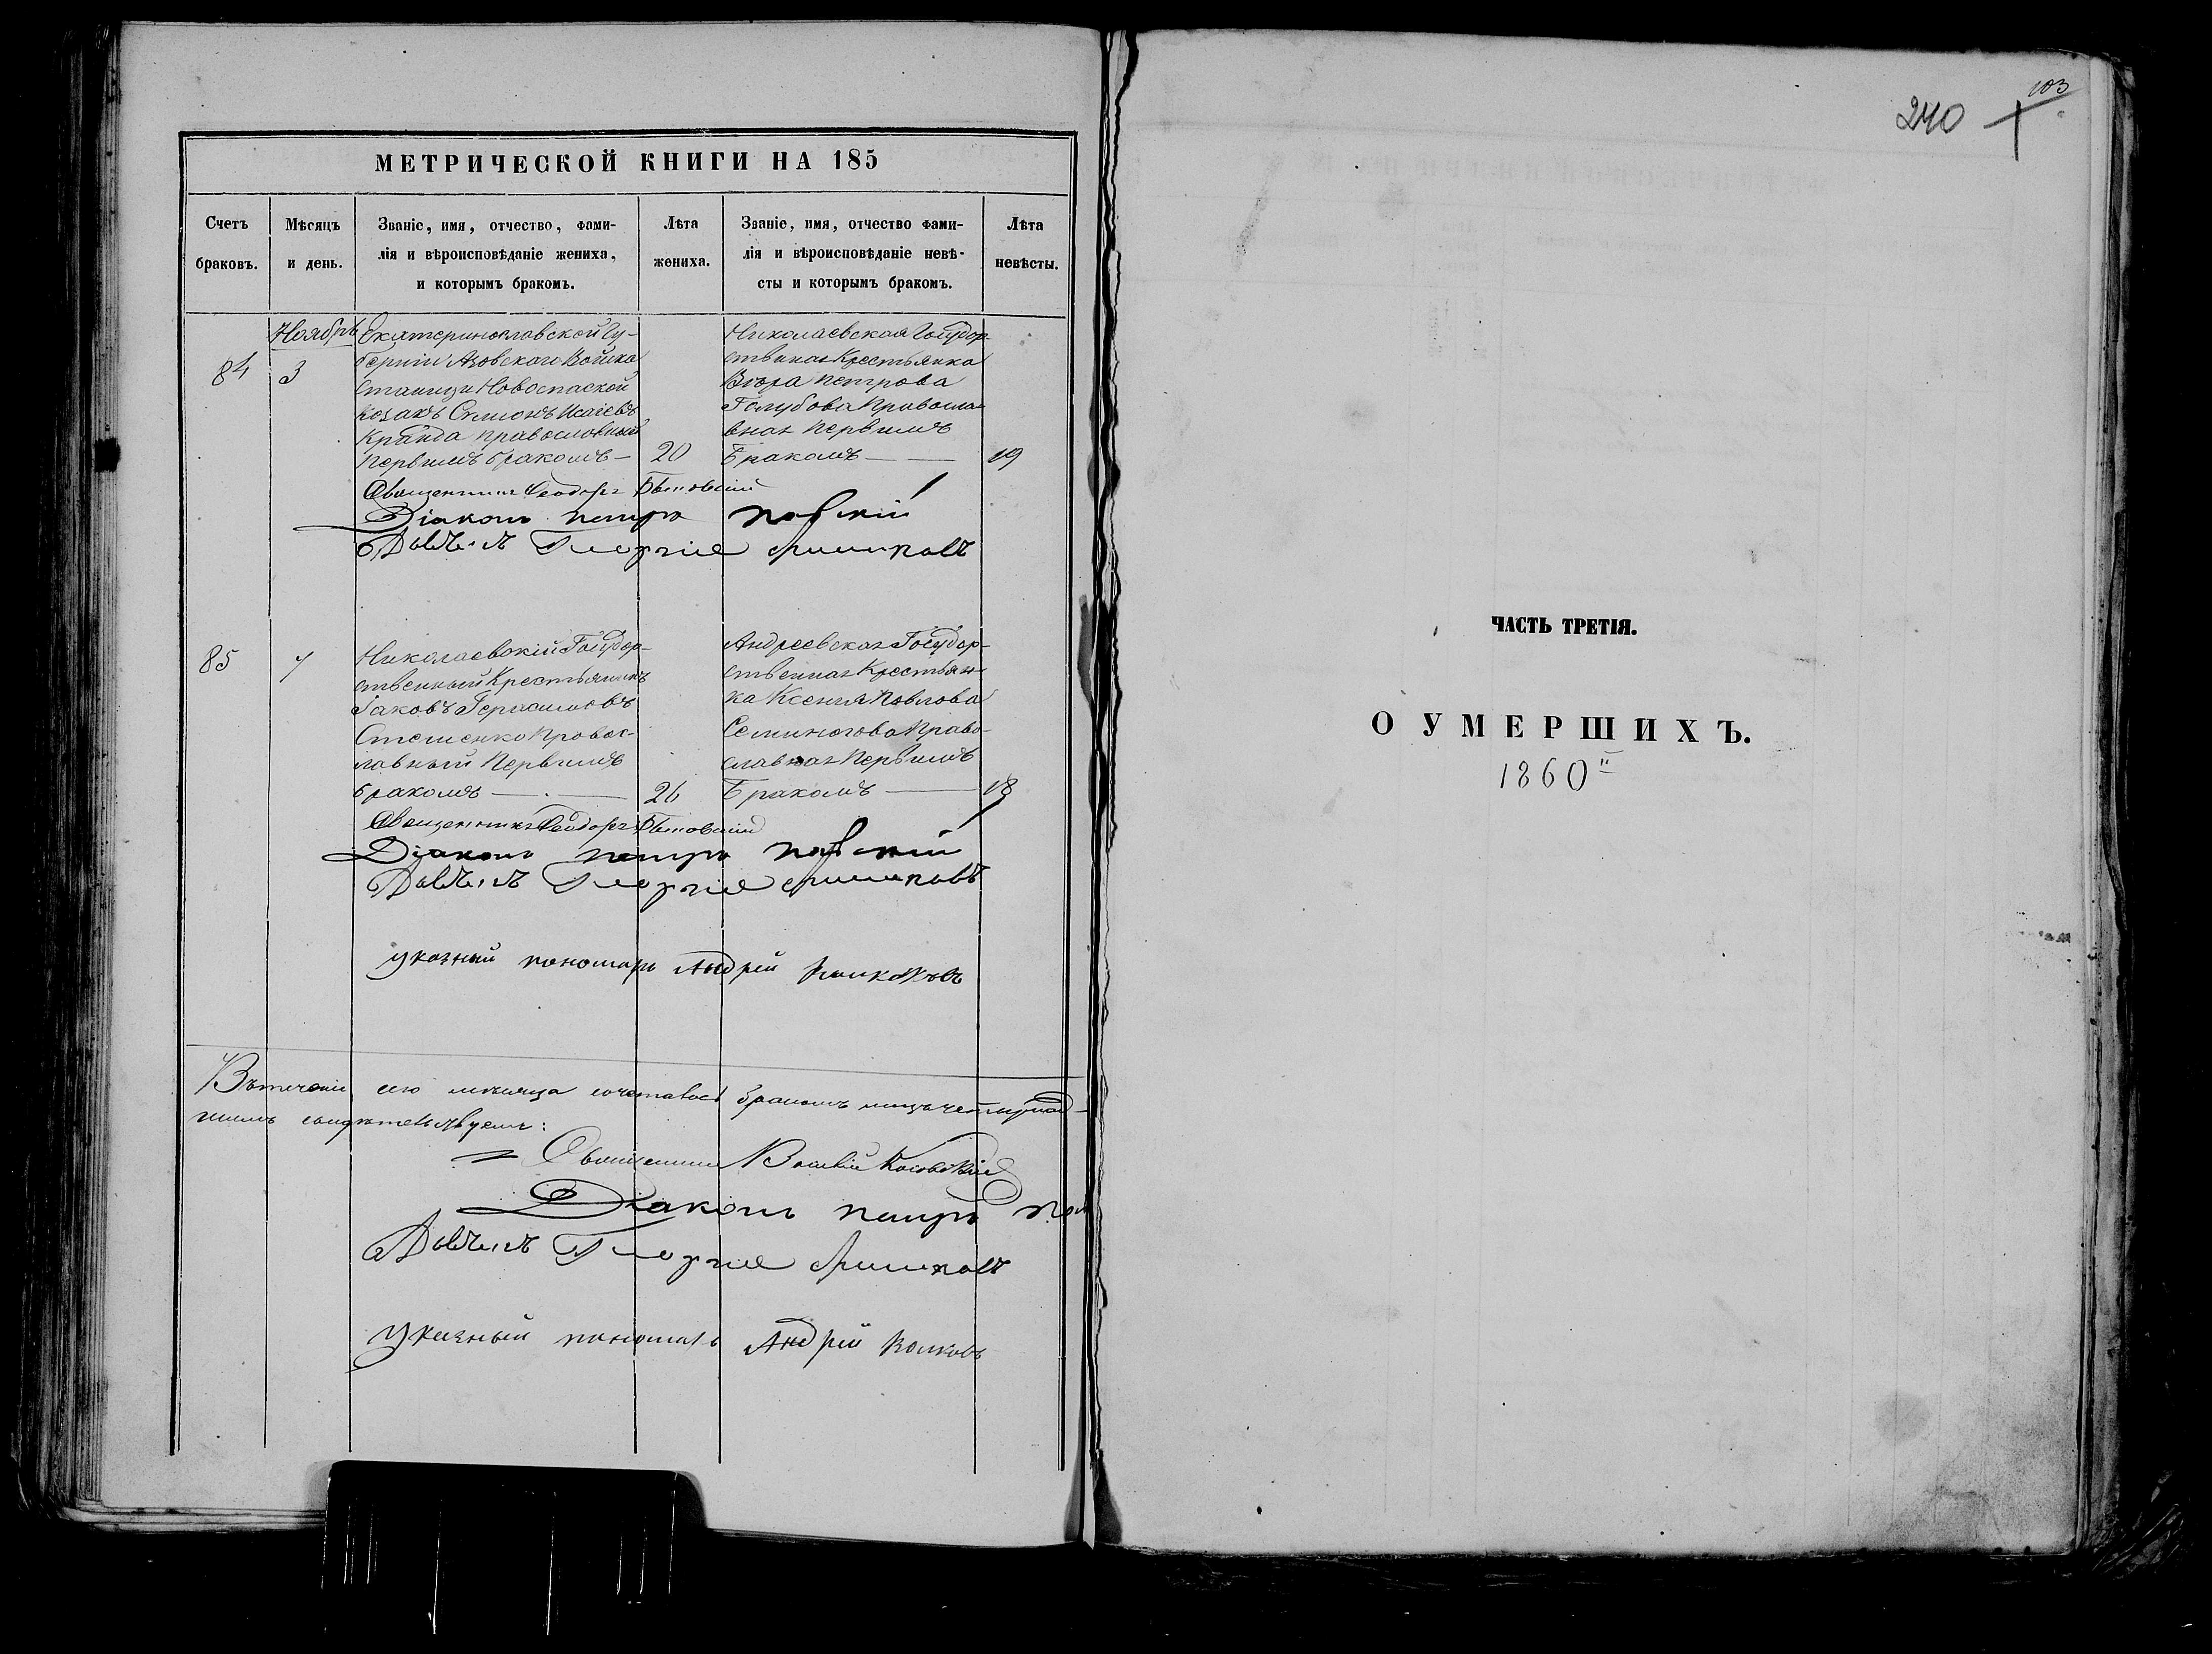 МЕТРИЧЕСКОЙ КНИГИ НА 185
Счетъ
браковъ.
Мѣсяцъ
и день.
Званіе, имя, отчество, фами-
лія и вѣроисповѣданіе жениха,
и которымъ бракомъ.
Лѣта
жениха.
Званіе, имя, отчество фами-
лія и вѣроисповѣданіе невѣ-
сты и которымъ бракомъ.
Лѣта
невѣсты.
Ноябрь
84
3
Екатеринославской Гу-
берніи Азовскаго Войска
станицы Новоспаской
козакъ Симонъ Исаіевъ
православный
Первымъ бракомъ
20
Николаевская Государ-
ственная Крестьянка
Вѣра Петрова
Голубова Правосла-
вная Первымъ
Бракомъ
19
Священникъ Феодоръ
Діаконъ Петръ
Георгіе
85
7
Николаевскій Государ-
ственный Крестьянинъ
Іаковъ Герасимовъ
Стеценко Правос-
лавный Первымъ
бракомъ
26
Андреевская Государ-
ственная Крестьян-
ка Ксенія Павлова
Семиногова Право-
славная Первымъ
Бракомъ
18
Священникъ Феодоръ
Діаконъ Петръ
Георгіе
указный пономарь Андрей
Втеченіи сего мѣсяца бракомъ
свидѣтельствуемъ:
Священникъ
Діаконъ Петръ
Георгіе
Указный пономарь Андрей
103
240
ЧАСТЬ ТРЕТІЯ.
О УМЕРШИХЪ.
1860